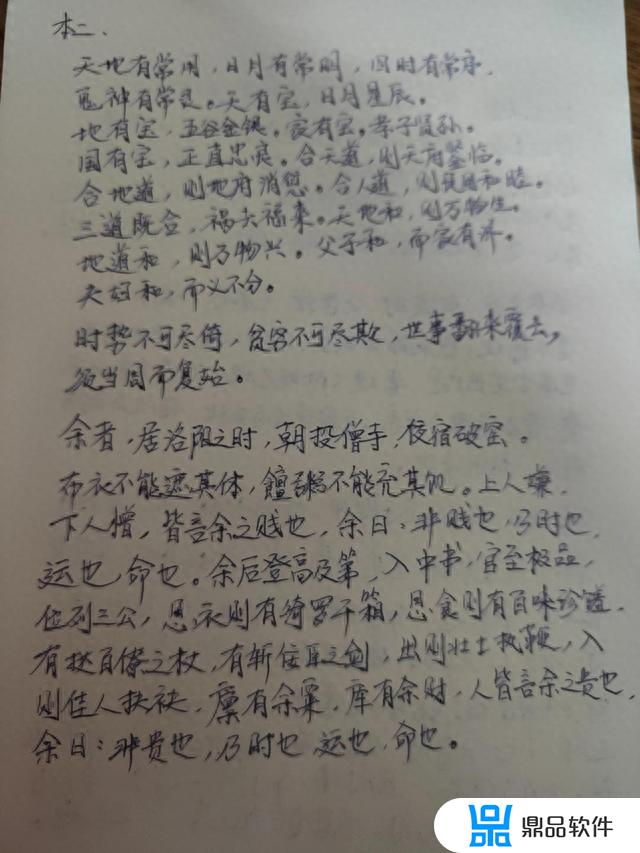 本二、
天地有常用，日月有常明，四时有常序，
鬼神有常灵。天有宝，日月星辰。
地有宝，五谷金银。家有宝，孝子贤孙。
国有宝，正直忠良。合天道，则天府鉴临。
合地道，则地府消愆。合人道，则民用和睦。
三道既合，祸去福来。天地和，则万物生。
地道和，则万物兴。父子和，而家有济。
夫妇和，而义不分。
时势不可尽倚，贫穷不可尽欺，世事翻来覆去，
须当周而复始。
余者，居洛阳之时，朝投僧寺，夜宿破窑。
布衣不能遮其体，饘粥不能充其饥。上人嫌，
下人憎，皆言余之贱也，余曰：非贱也，乃时也，
运也，命也。余后登高及第，入中书，官至极品，
位列三公，思衣则有绮罗千箱，思食则有百味珍馐，
有挞百僚之杖，有斩佞臣之剑，出则壮士执鞭，入
则佳人扶袂，廪有余粟，库有余财，人皆言余之贵也，
余曰：非贵也，乃时也，运也，命也。
鼎品软件